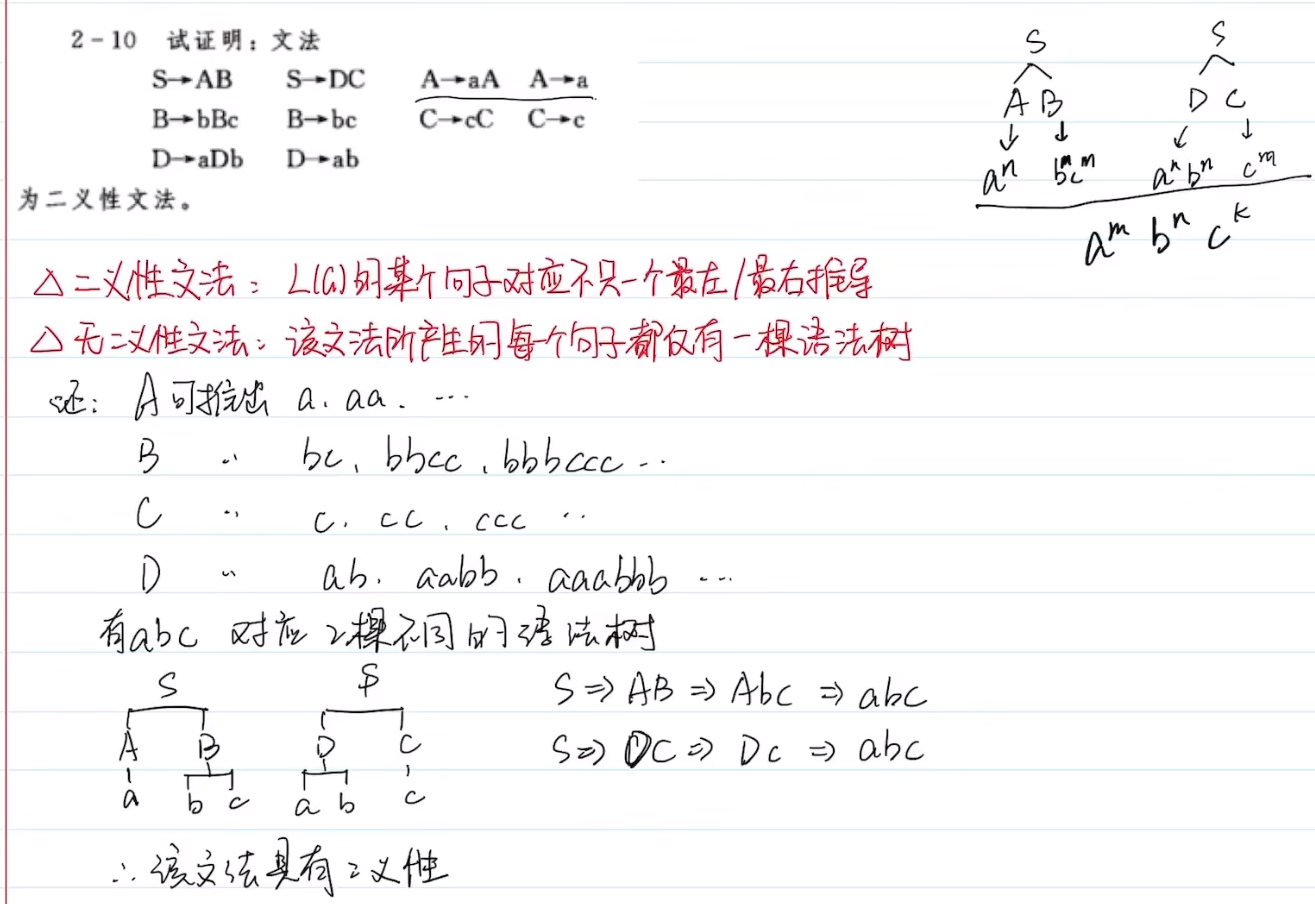 2-10 试证明：文法
S→AB S→DC A→aA A→a
B→bBc B→bc C→cC C→c
D→aDb D→ab
为二义性文法。
S S
A B D C
↓ ↓ ↓ ↓
aⁿ bᵐcᵐ aⁿbⁿ cᵐ
aᵐ bⁿ cᵏ
△ 二义性文法：L(G)的某个句子对应不只一个最左/最右推导
△ 无二义性文法：该文法所产生的每个句子都仅有一棵语法树
证：A可推出 a、aa、…
B 〃 bc、bbcc、bbbccc …
C 〃 c、cc、ccc …
D 〃 ab、aabb、aaabbb …
有abc 对应2棵不同的语法树
S S
A B D C
a b c a b c
S⇒AB⇒Abc⇒abc
S⇒DC⇒Dc⇒abc
∴该文法具有二义性